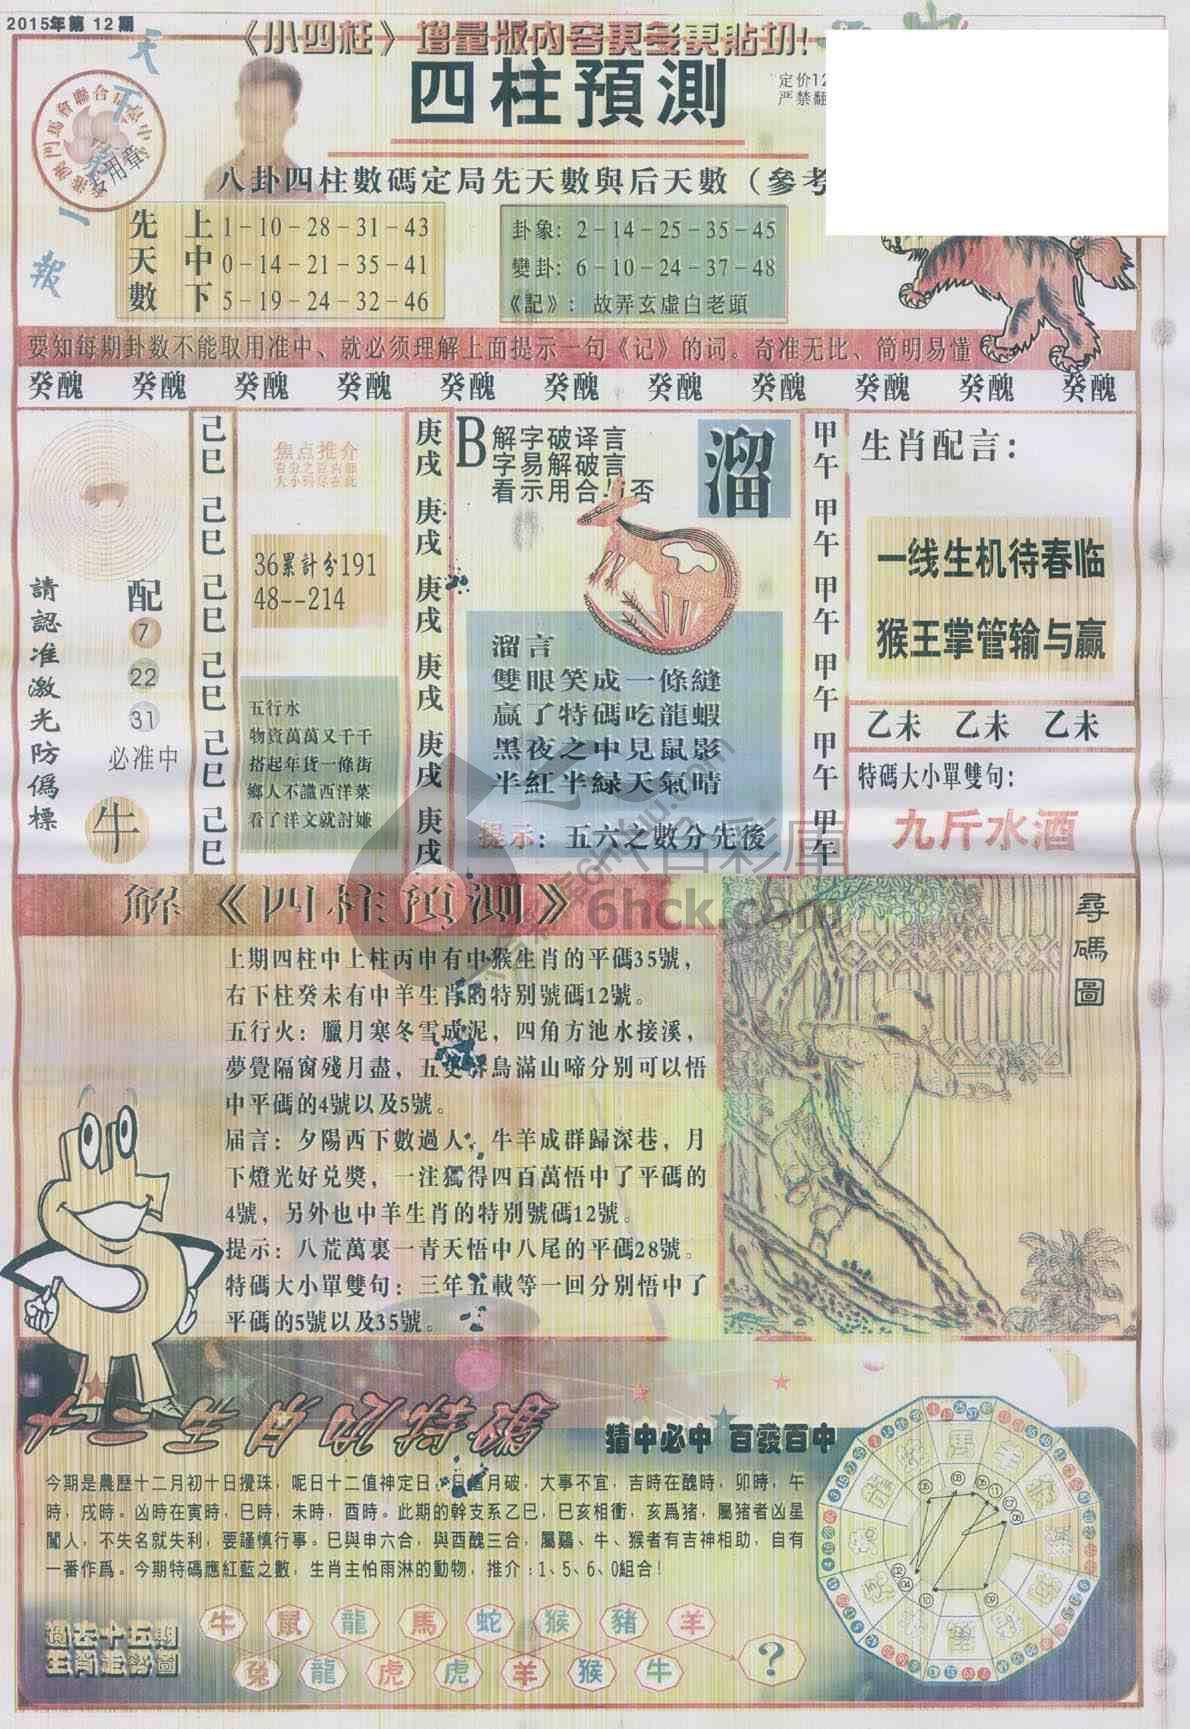 2015年第12期
《小四柱》增量版内容更多更貼切!
天下第一報
四柱預測
定价12
严禁翻
八卦四柱數碼定局先天數與后天數（參考
先天數
上 1－10－28－31－43
中 0－14－21－35－41
下 5－19－24－32－46
卦象: 2－14－25－35－45
變卦: 6－10－24－37－48
《記》: 故弄玄虛白老頭
要知每期卦数不能取用准中、就必须理解上面提示一句《记》的词。奇准无比、简明易懂
癸醜 癸醜 癸醜 癸醜 癸醜 癸醜 癸醜 癸醜 癸醜 癸醜 癸醜
請認准激光防僞標
配
7
22
31
必准中
牛
己巳 己巳 己巳 己巳 己巳 己巳
焦点推介
36累計分191
48--214
五行水
物資萬萬又千千
搭起年货一條街
鄉人不識西洋菜
看了洋文就討嫌
庚戌 庚戌 庚戌 庚戌 庚戌 庚戌
B
解字破译言
字易解破言
看示用合与否
溜
溜言
雙眼笑成一條縫
贏了特碼吃龍蝦
黑夜之中見鼠影
半紅半綠天氣晴
提示: 五六之數分先後
甲午 甲午 甲午 甲午 甲午 甲午
生肖配言:
一线生机待春临
猴王掌管输与赢
乙未 乙未 乙未
特碼大小單雙句:
九斤水酒
6hck.com
解《四柱預測》
上期四柱中上柱丙申有中猴生肖的平碼35號，
右下柱癸未有中羊生肖的特别號碼12號。
五行火: 臘月寒冬雪成泥，四角方池水接溪，
夢覺隔窗殘月盡，五更春鳥滿山啼分别可以悟
中平碼的4號以及5號。
届言: 夕陽西下數過人，牛羊成群歸深巷，月
下燈光好兑獎，一注獨得四百萬悟中了平碼的
4號，另外也中羊生肖的特别號碼12號。
提示: 八荒萬裏一青天悟中八尾的平碼28號。
特碼大小單雙句: 三年五載等一回分别悟中了
平碼的5號以及35號。
尋碼圖
猜中必中 百發百中
今期是農歷十二月初十日攪珠，呢日十二值神定日，日值月破，大事不宜，吉時在醜時，卯時，午
時，戌時。凶時在寅時，巳時，未時，酉時。此期的幹支系乙巳，巳亥相衝，亥爲猪，屬猪者凶星
闖人，不失名就失利，要謹慎行事。巳與申六合，與酉醜三合，屬鷄、牛、猴者有吉神相助，自有
一番作爲。今期特碼應紅藍之數，生肖主怕雨淋的動物，推介:1、5、6、0組合!
過去十五期
生肖走勢圖
牛 鼠 龍 馬 蛇 猴 豬 羊
兔 龍 虎 虎 羊 猴 牛
?